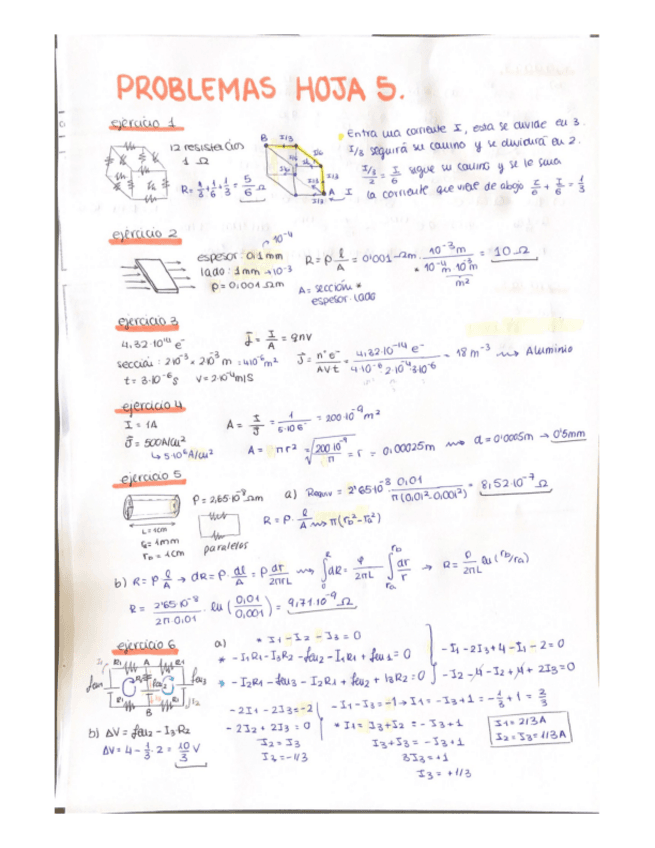 PROBLEMAS HOJA 5.
ejercicio 1
12 resistencias
1 Ω
R = 1/3 + 1/6 + 1/3 = 5/6 Ω
B
I/3
I/6
A I
I/3
Entra una corriente I, esta se divide en 3.
I/3 seguirá su camino y se dividirá en 2.
(I/3)/2 = I/6 sigue su camino y se le suma
la corriente que viene de abajo I/6 + I/6 = I/3
ejercicio 2
espesor: 0,1 mm → 10⁻⁴
lado: 1mm → 10⁻³
ρ = 0,001 Ωm
R = ρ · l/A = 0'001 Ωm · 10⁻³ m / 10⁻⁴ m 10⁻³ m = 10 Ω
m²
A = sección *
espesor · lado
ejercicio 3
4,32·10¹⁴ e⁻
J = I/A = qnv
sección: 2·10⁻³ × 2·10⁻³ m = 4·10⁻⁶ m²
t = 3·10⁻⁶ s V = 2·10⁻⁴ m/s
J = nº e⁻ / AVt = 4,32·10⁻¹⁴ e⁻ / 4·10⁻⁶ 2·10⁻⁴ 3·10⁻⁶ = 18 m⁻³ → Aluminio
ejercicio 4
I = 1A
J = 500A/cm²
↳ 5·10⁶ A/cm²
A = I/J = 1 / 5·10⁶ = 200·10⁻⁹ m²
A = πr² = √(200·10⁻⁹ / π) = r = 0,00025m → d = 0'0005m → 0'5mm
ejercicio 5
L = 1cm
ra = 1mm
rb = 1cm
ρ = 2,65·10⁻⁸ Ωm
paralelos
a) Requiv = 2'65·10⁻⁸ 0,01 / π(0,01² · 0,001²) = 8,52·10⁻⁷ Ω
R = ρ · l/A → π(rb² - ra²)
b) R = ρ l/A → dR = ρ · dl/A = ρ dr/2πrL → ∫₀ᴿ dR = ρ/2πL ∫ dr/r → R = ρ/2πL ln(rb/ra)
R = 2'65·10⁻⁸ / 2π·0,01 · ln(0,01/0,001) = 9,71·10⁻⁷ Ω
ejercicio 6
a)
* I₁ - I₂ - I₃ = 0
* -I₁R₁ - I₃R₂ - fem₂ - I₁R₁ + fem₁ = 0
* -I₂R₁ - fem₃ - I₂R₁ + fem₂ + I₃R₂ = 0
-I₁ - 2I₃ + 4 - I₁ - 2 = 0
-I₂ - 4 - I₂ + 4 + 2I₃ = 0
-2I₁ - 2I₃ = -2
-2I₂ + 2I₃ = 0
I₂ = I₃
I₃ = -1/3
-I₁ - I₃ = -1 → I₁ = -I₃ + 1 = -1/3 + 1 = 2/3
* I₁ = I₃ + I₂ = -I₃ + 1
I₃ + I₃ = -I₃ + 1
3I₃ = +1
I₃ = +1/3
I₁ = 2/3A
I₂ = I₃ = 1/3A
b) ΔV = fem₂ - I₃·R₂
ΔV = 4 - 1/3 · 2 = 10/3 V